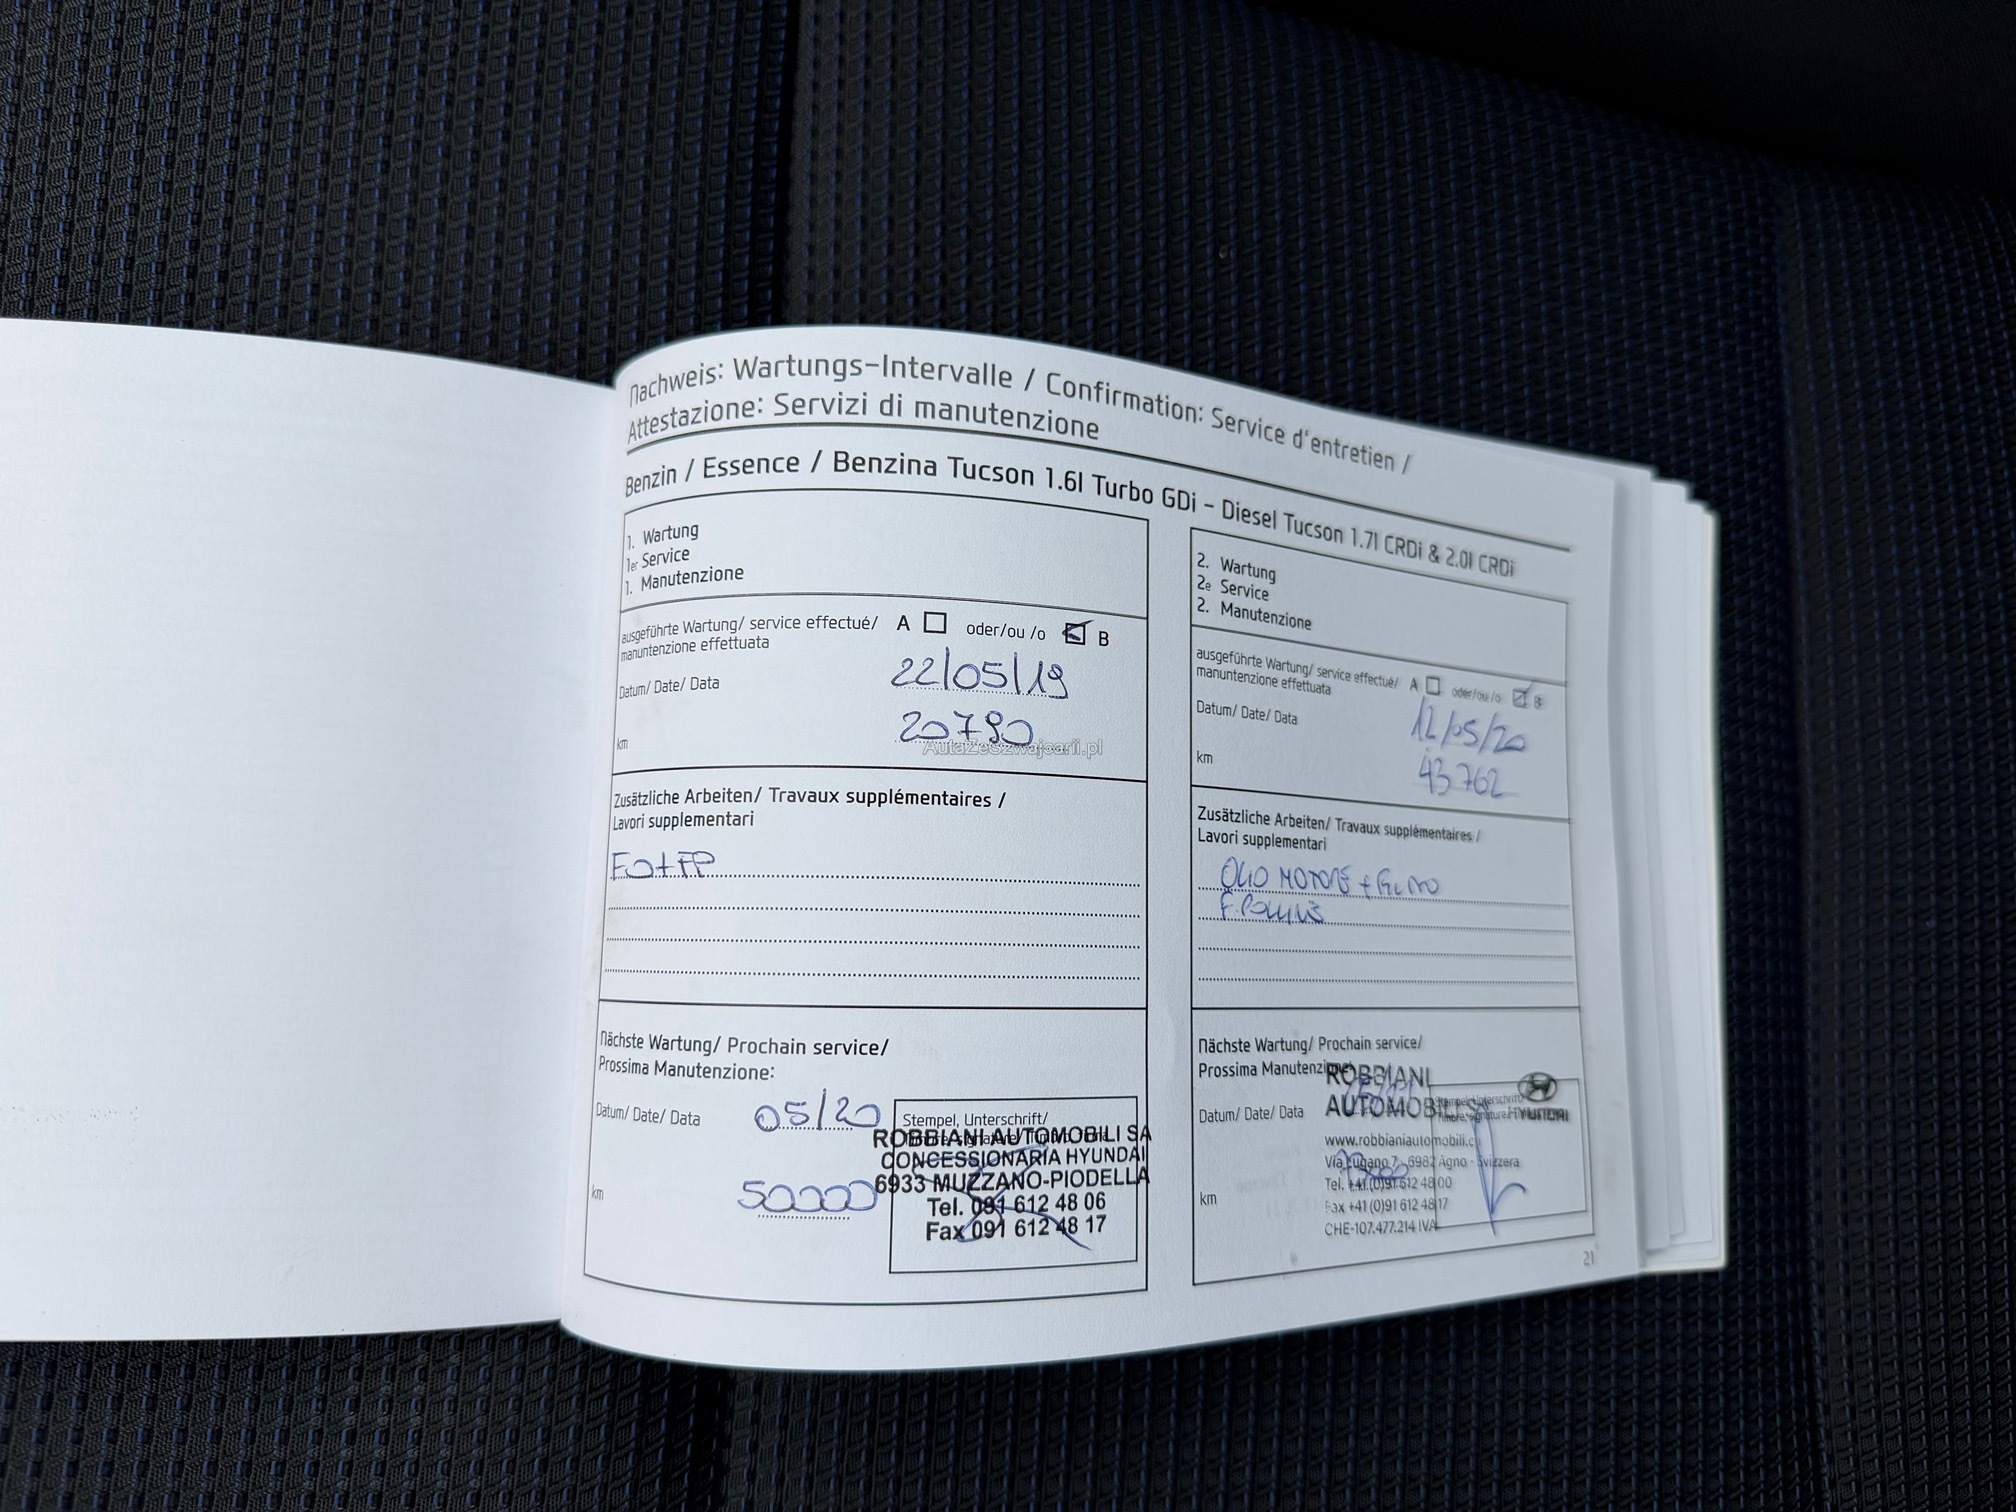 Nachweis: Wartungs-Intervalle / Confirmation: Service d'entretien /
Attestazione: Servizi di manutenzione
Benzin / Essence / Benzina Tucson 1.6l Turbo GDi - Diesel Tucson 1.7l CRDi & 2.0l CRDi
1. Wartung
1er Service
1. Manutenzione
ausgeführte Wartung/ service effectué/ A oder/ou /o B
manuntenzione effettuata
Datum/ Date/ Data 22/05/19
km 20790
AutaZeSzwajcarii.pl
Zusätzliche Arbeiten/ Travaux supplémentaires /
Lavori supplementari
FO+FP
Nächste Wartung/ Prochain service/
Prossima Manutenzione:
Datum/ Date/ Data 05/20
km 50000
Stempel, Unterschrift/
ROBBIANI AUTOMOBILI SA
CONCESSIONARIA HYUNDAI
6933 MUZZANO-PIODELLA
Tel. 091 612 48 06
Fax 091 612 48 17
2. Wartung
2e Service
2. Manutenzione
ausgeführte Wartung/ service effectué/ A oder/ou /o B
manuntenzione effettuata
Datum/ Date/ Data 12/05/20
km 43762
Zusätzliche Arbeiten/ Travaux supplémentaires /
Lavori supplementari
OLIO MOTORE + FILTRO
F. POLLINE
Nächste Wartung/ Prochain service/
Prossima Manutenzione:
Datum/ Date/ Data
km
ROBBIANI
AUTOMOBILI SA
HYUNDAI
www.robbianiautomobili.c
Via Lugano 7 - 6982 Agno - Svizzera
Tel. +41 (0)91 612 48 00
Fax +41 (0)91 612 48 17
CHE-107.477.214 IVA
21